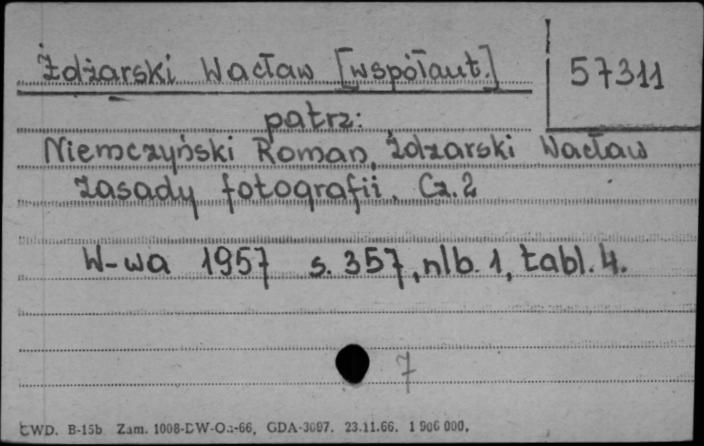 Żdżarski Wacław [współaut.] 57311
patrz:
Niemczyński Roman, Żdżarski Wacław
Zasady fotografii. Cz. 2
W-wa 1957 s. 357, nlb. 1, tabl. 4.
7
CWD. B-15b Zam. 1008-DW-Oa-66, GDA-3097. 23.11.66. 1 906 000.